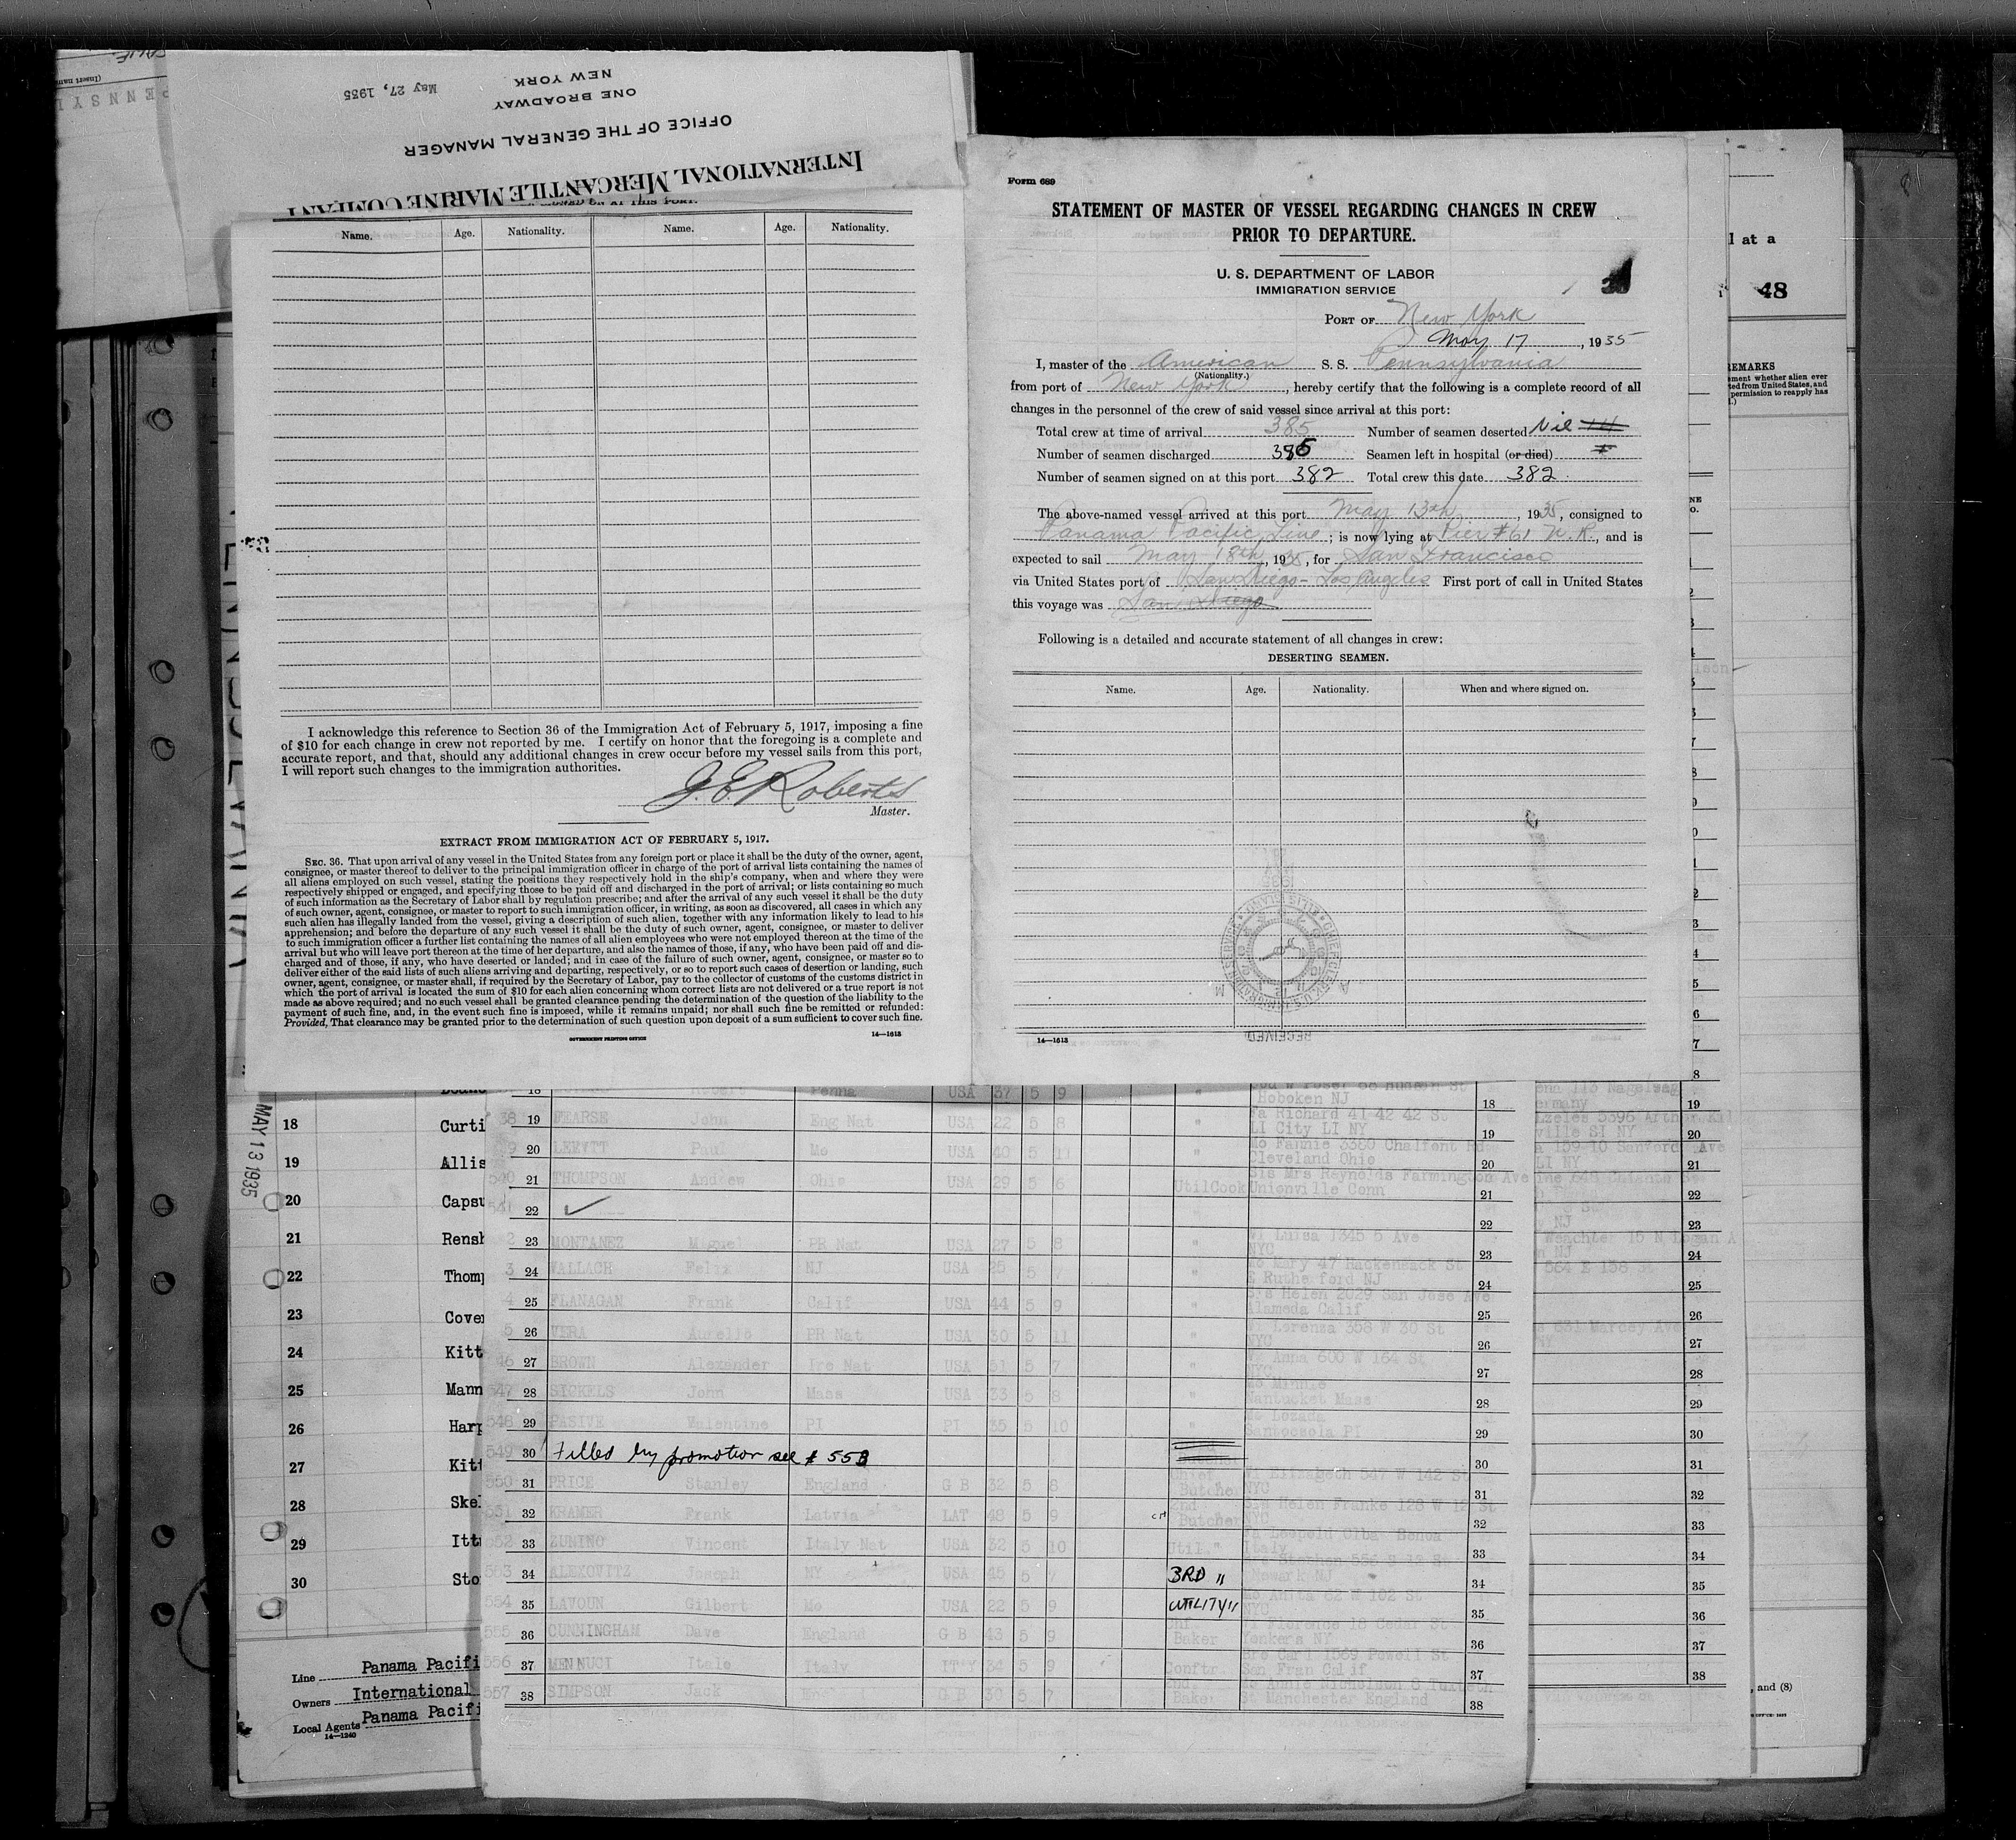 INTERNATIONAL MERCANTILE MARINE COMPANY
OFFICE OF THE GENERAL MANAGER
ONE BROADWAY
NEW YORK
May 27, 1935
Name. Age. Nationality. Name. Age. Nationality.
I acknowledge this reference to Section 36 of the Immigration Act of February 5, 1917, imposing a fine
of $10 for each change in crew not reported by me. I certify on honor that the foregoing is a complete and
accurate report, and that, should any additional changes in crew occur before my vessel sails from this port,
I will report such changes to the immigration authorities.
J. E. Roberts
Master.
EXTRACT FROM IMMIGRATION ACT OF FEBRUARY 5, 1917.
SEC. 36. That upon arrival of any vessel in the United States from any foreign port or place it shall be the duty of the owner, agent,
consignee, or master thereof to deliver to the principal immigration officer in charge of the port of arrival lists containing the names of
all aliens employed on such vessel, stating the positions they respectively hold in the ship's company, when and where they were
respectively shipped or engaged, and specifying those to be paid off and discharged in the port of arrival; or lists containing so much
of such information as the Secretary of Labor shall by regulation prescribe; and after the arrival of any such vessel it shall be the duty
of such owner, agent, consignee, or master to report to such immigration officer, in writing, as soon as discovered, all cases in which any
such alien has illegally landed from the vessel, giving a description of such alien, together with any information likely to lead to his
apprehension; and before the departure of any such vessel it shall be the duty of such owner, agent, consignee, or master to deliver
to such immigration officer a further list containing the names of all alien employees who were not employed thereon at the time of the
arrival but who will leave port thereon at the time of her departure, and also the names of those, if any, who have been paid off and dis-
charged and of those, if any, who have deserted or landed; and in case of the failure of such owner, agent, consignee, or master so to
deliver either of the said lists of such aliens arriving and departing, respectively, or so to report such cases of desertion or landing, such
owner, agent, consignee, or master shall, if required by the Secretary of Labor, pay to the collector of customs of the customs district in
which the port of arrival is located the sum of $10 for each alien concerning whom correct lists are not delivered or a true report is not
made as above required; and no such vessel shall be granted clearance pending the determination of the question of the liability to the
payment of such fine, and, in the event such fine is imposed, while it remains unpaid; nor shall such fine be remitted or refunded:
Provided, That clearance may be granted prior to the determination of such question upon deposit of a sum sufficient to cover such fine.
GOVERNMENT PRINTING OFFICE 14—1613
Form 689
STATEMENT OF MASTER OF VESSEL REGARDING CHANGES IN CREW
PRIOR TO DEPARTURE.
U. S. DEPARTMENT OF LABOR
IMMIGRATION SERVICE
PORT OF New York
May 17, 1935
I, master of the American S. S. Pennsylvania
(Nationality.)
from port of New York, hereby certify that the following is a complete record of all
changes in the personnel of the crew of said vessel since arrival at this port:
Total crew at time of arrival 385 Number of seamen deserted Nil
Number of seamen discharged 385 Seamen left in hospital (or died)
Number of seamen signed on at this port 382 Total crew this date 382
The above-named vessel arrived at this port May 13th, 1935, consigned to
Panama Pacific Line; is now lying at Pier #61 N. R., and is
expected to sail May 18th, 1935, for San Francisco
via United States port of San Diego - Los Angeles First port of call in United States
this voyage was San Diego
Following is a detailed and accurate statement of all changes in crew:
DESERTING SEAMEN.
Name. Age. Nationality. When and where signed on.
14—1613
RECEIVED
l at a
48
REMARKS
MAY 13 1935
18 Curti
19 Allis
20 Capsu
21 Rensh
22 Thomp
23 Cover
24 Kitt
25 Mann
26 Harp
27 Kitt
28 Skel
29 Itt
30 Sto
Line Panama Pacifi
Owners International
Local Agents Panama Pacifi
14—1240
18 Robert Penna USA 37 5 9 Hoboken NJ 18
19 FEARSE John Eng Nat USA 22 5 8 " Fa Richard 41-42 42 St LI City LI NY 19
20 LEEVTT Paul Mo USA 40 5 11 " Mo Fannie 3380 Chalfont Rd Cleveland Ohio 20
21 THOMPSON Andrew Ohio USA 29 5 6 UtilCook Sis Mrs Reynolds Farmington Ave Unionville Conn 21
22 22
23 MONTANEZ Miguel PR Nat USA 27 5 8 " Wi Luisa 1345 5 Ave NYC 23
24 WALLACH Felix NJ USA 25 5 7 " Mo Mary 47 Hackensack St E Rutherford NJ 24
25 FLANAGAN Frank Calif USA 44 5 9 " Sis Helen 2029 San Jose Ave Alameda Calif 25
26 VERA Aurelio PR Nat USA 30 5 11 " Lorensa 358 W 30 St NYC 26
27 BROWN Alexander Ire Nat USA 51 5 7 " Anna 600 W 164 St NYC 27
28 SICKELS John Mass USA 33 5 8 " Mo Minnie Nantucket Mass 28
29 PASIVE Valentino PI PI 35 5 10 " Mo Lozada PI 29
30 Filled by promotion see # 553 30
31 PRICE Stanley England G B 32 5 8 Chief Butcher Wi Elizabeth 547 W 142 St NYC 31
32 KRAMER Frank Latvia LAT 48 5 9 2nd Butcher Sis Helen Franke 128 W 12 St NYC 32
33 ZUNINO Vincent Italy Nat USA 32 5 10 Util " Fa Leopold Genoa Italy 33
34 ALEXOVITZ Joseph NY USA 45 5 7 3RD " Newark NJ 34
35 LAVOUN Gilbert Mo USA 22 5 9 UTILITY " Mo Anita 62 W 102 St NYC 35
36 CUNNINGHAM Dave England G B 43 5 9 Chf Baker Wi Florence 18 Cedar St Yonkers NY 36
37 MENNUCI Italo Italy IT'Y 34 5 9 Conftr Bro Carl 1569 Powell St San Fran Calif 37
38 SIMPSON Jack G B 30 5 7 2nd Baker Annie Nicholson St Manchester England 38
, and (8)